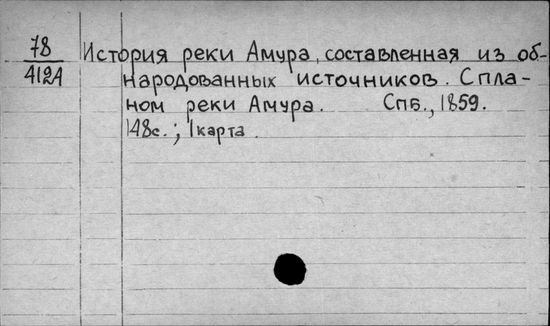 78
412А
История реки Амура, составленная из об-
народованных источников. С пла-
ном реки Амура. Спб., 1859.
148с.; 1карта.